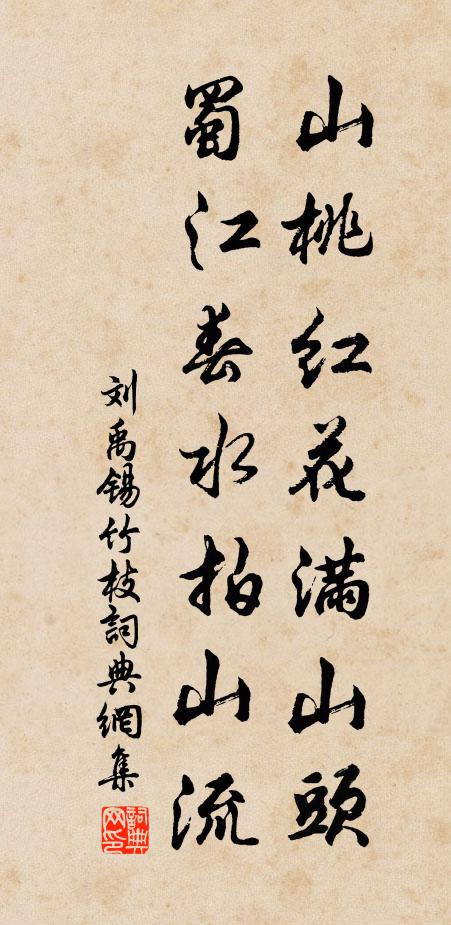 山桃红花满山頭
蜀江春水拍山流
刘禹锡竹枝詞典網集
詞典网印